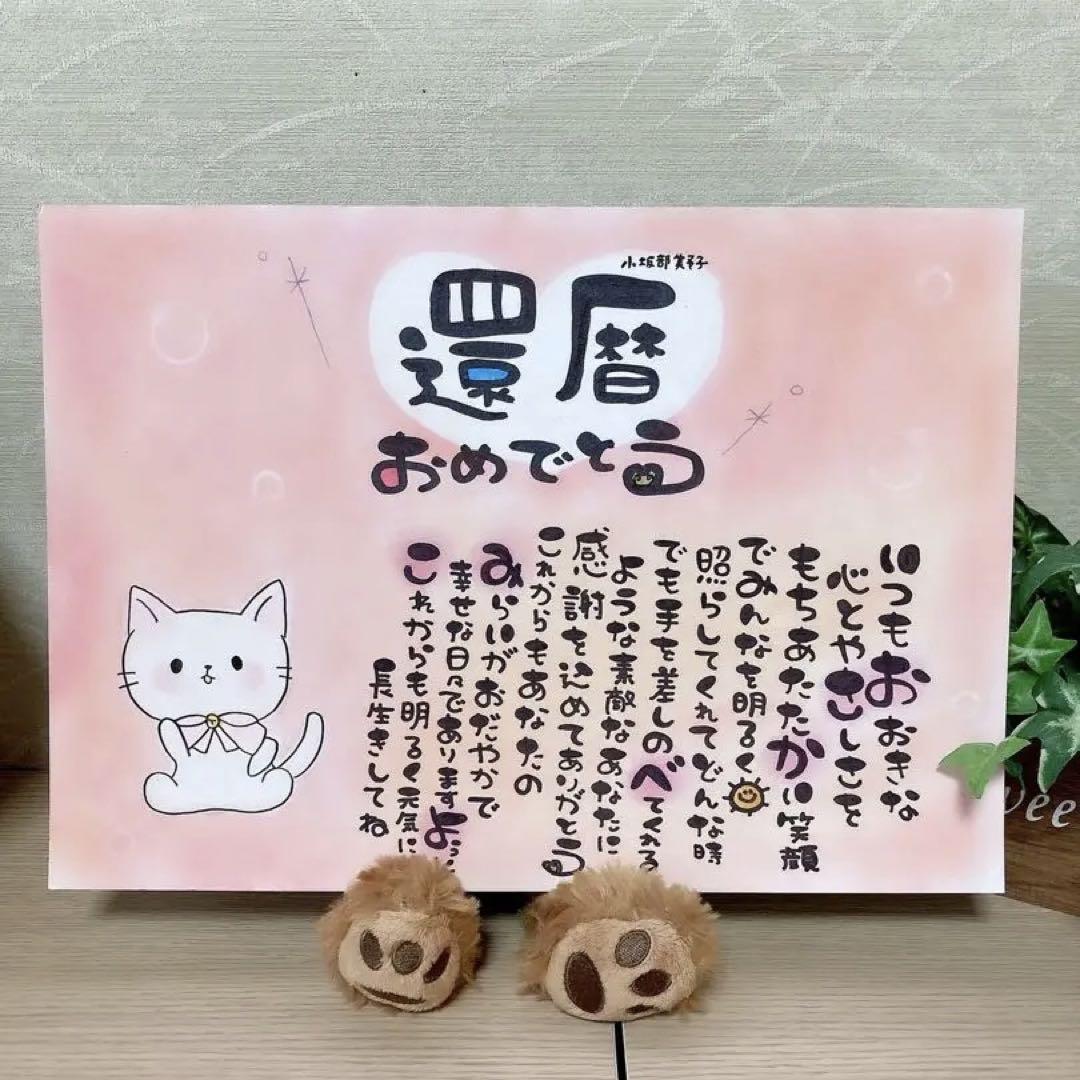 小坂部
還暦
おめでとう
いつもおおきな
心とやさしさを
もちあたたかい笑顔
でみんなを明るく
照らしてくれてどんな時
でも手を差しのべてくれる
ような素敵なあなたに
感謝を込めてありがとう
これからもあなたの
みらいがおだやかで
幸せな日々でありますよう
これからも明るく元気に
長生きしてね